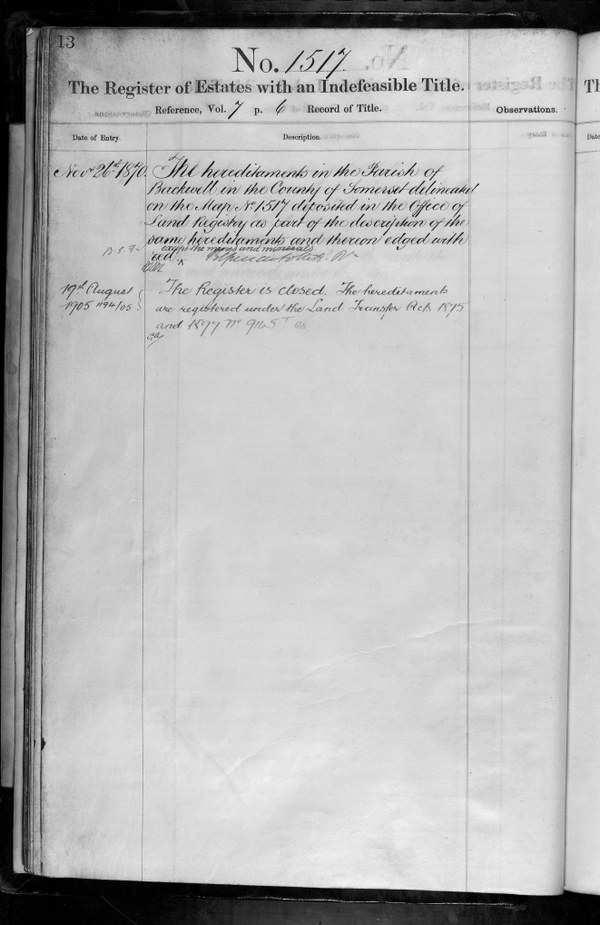 13
No. 1517
The Register of Estates with an Indefeasible Title.
Reference, Vol. 7 p. 6 Record of Title.
Observations.
Date of Entry.
Description.
Novr 26th 1870. The hereditaments in the Parish of
Backwell in the County of Somerset delineated
on the Map No 1517 deposited in the Office of
Land Registry as part of the description of the
same hereditaments and thereon edged with
except the mines and minerals
red
19th August
1905
The Register is closed. The hereditaments
are registered under the Land Transfer Acts 1875
and 1897 No